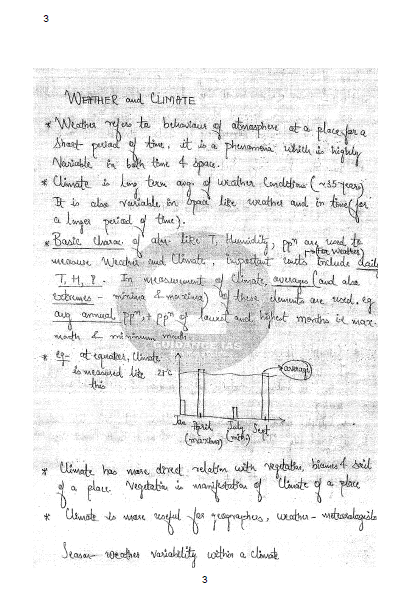 3
WEATHER and CLIMATE
* Weather refers to behaviour of atmosphere at a place for a
short period of time, it is a phenomena which is highly
variable in both time & space.
* Climate is long term avg. of weather condition (~35 years)
It is also variable in space like weather and in time (for
a longer period of time).
* Basic charac. of atm. like T, Humidity, ppn are used to
measure Weather and Climate. Important units include daily
(for weather)
T, H, P. In measurement of Climate, averages (and also
extremes - minima & maxima) of these elements are used. eg.
avg annual ppn, + ppn of lowest and highest months ie max-
month & minimum month
GUIDANCE IAS
* eg- at equator, Climate
is measured like
this
27°C
average
Jan April July Sept
(maximum) (min.)
* Climate has more direct relation with vegetation, biomes & soil
of a place. Vegetation is manifestation of Climate of a place
* Climate is more useful for geographers, weather - meteorologists
Season - weather variability within a climate
3